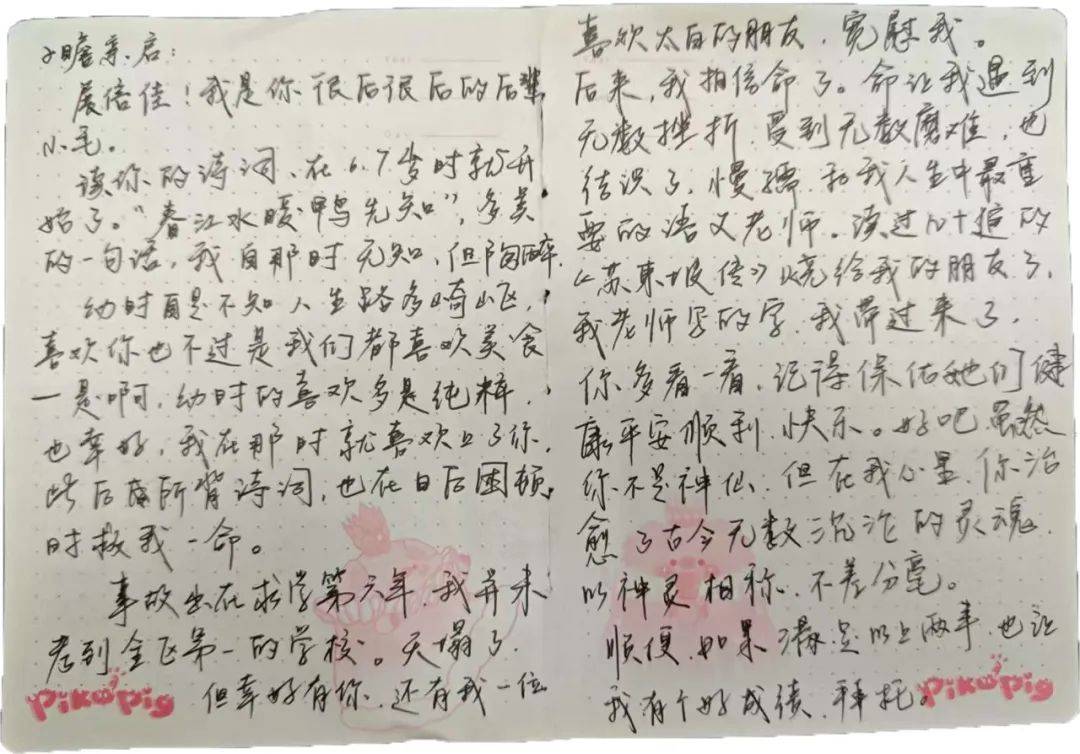 子瞻亲启:
展信佳!我是你很后很后的后辈
小毛。
读你的诗词、在6.7岁时就开
始了。“春江水暖鸭先知”,多美
的一句话,我自那时无知,但陶醉.
幼时真是不知人生路多崎岖,
喜欢你也不过是我们都喜欢美食
一是啊,幼时的喜欢多是纯粹,
也幸好,我在那时就喜欢上了你,
此后所背诗词,也在日后困顿
时救我一命。
事故出在求学第六年,我并未
考到全区第一的学校。天塌了.
但幸好有你,还有我一位
喜欢太白的朋友,宽慰我。
后来,我相信命了。命让我遇到
无数挫折,受到无数磨难,也
结识了,慢孺,和我人生中最重
要的语文老师。读过几十遍的
《苏东坡传》烧给我的朋友了,
我老师写的字,我带过来了,
你多看一看,记得保佑她们健
康平安顺利,快乐。好吧,虽然
你不是神仙,但在我心里,你治
愈了古今无数沉沦的灵魂,
以神灵相称,不差分毫。
顺便,如果满足以上两事,也让
我有个好成绩,拜托。
Pikopig
Pikopig